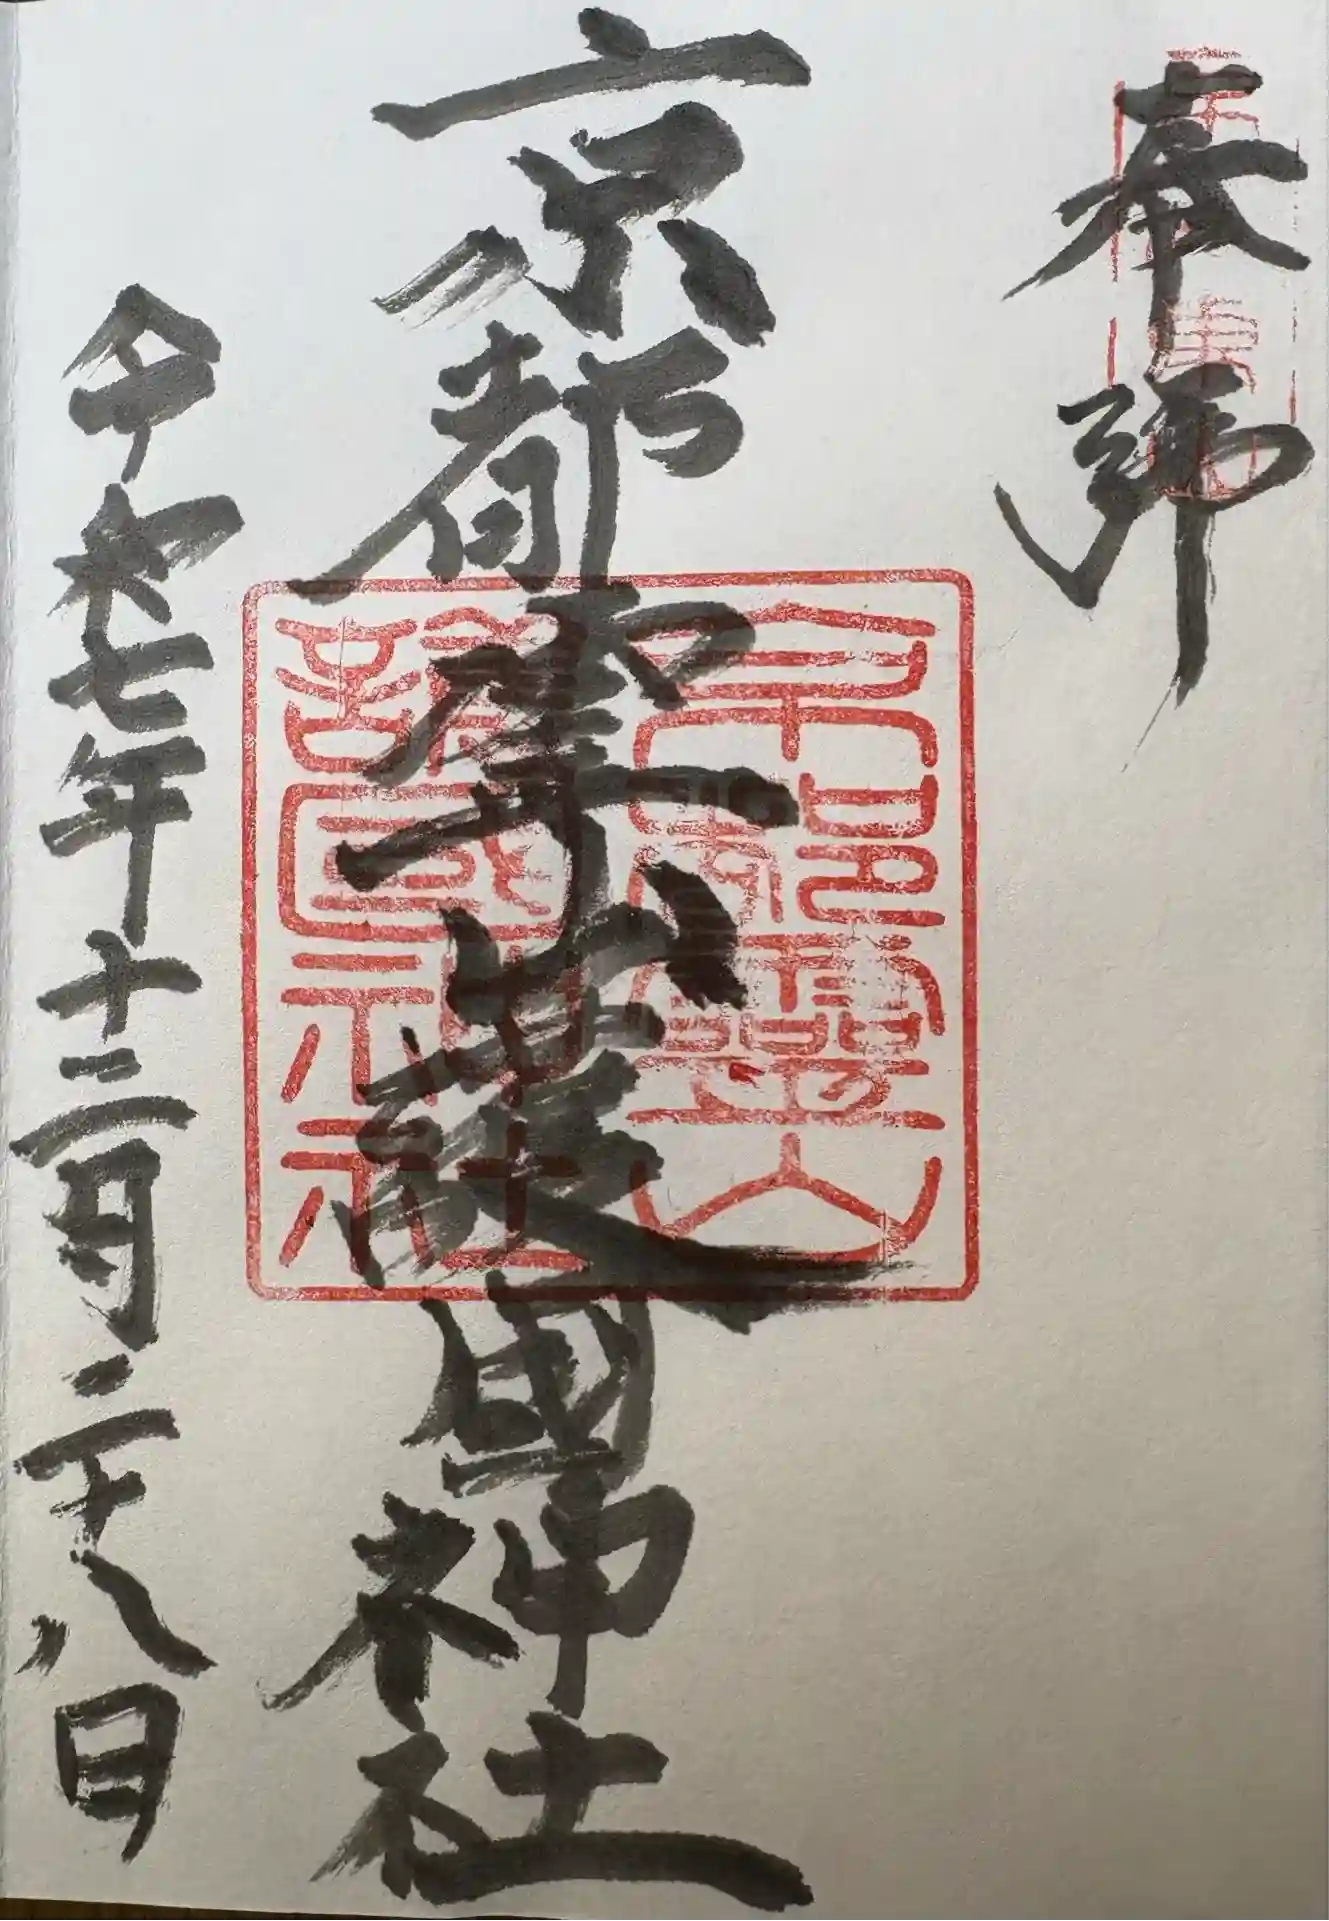 奉拝
京都霊山護國神社
京都靈山
護國神社
令和七年十二月二十八日